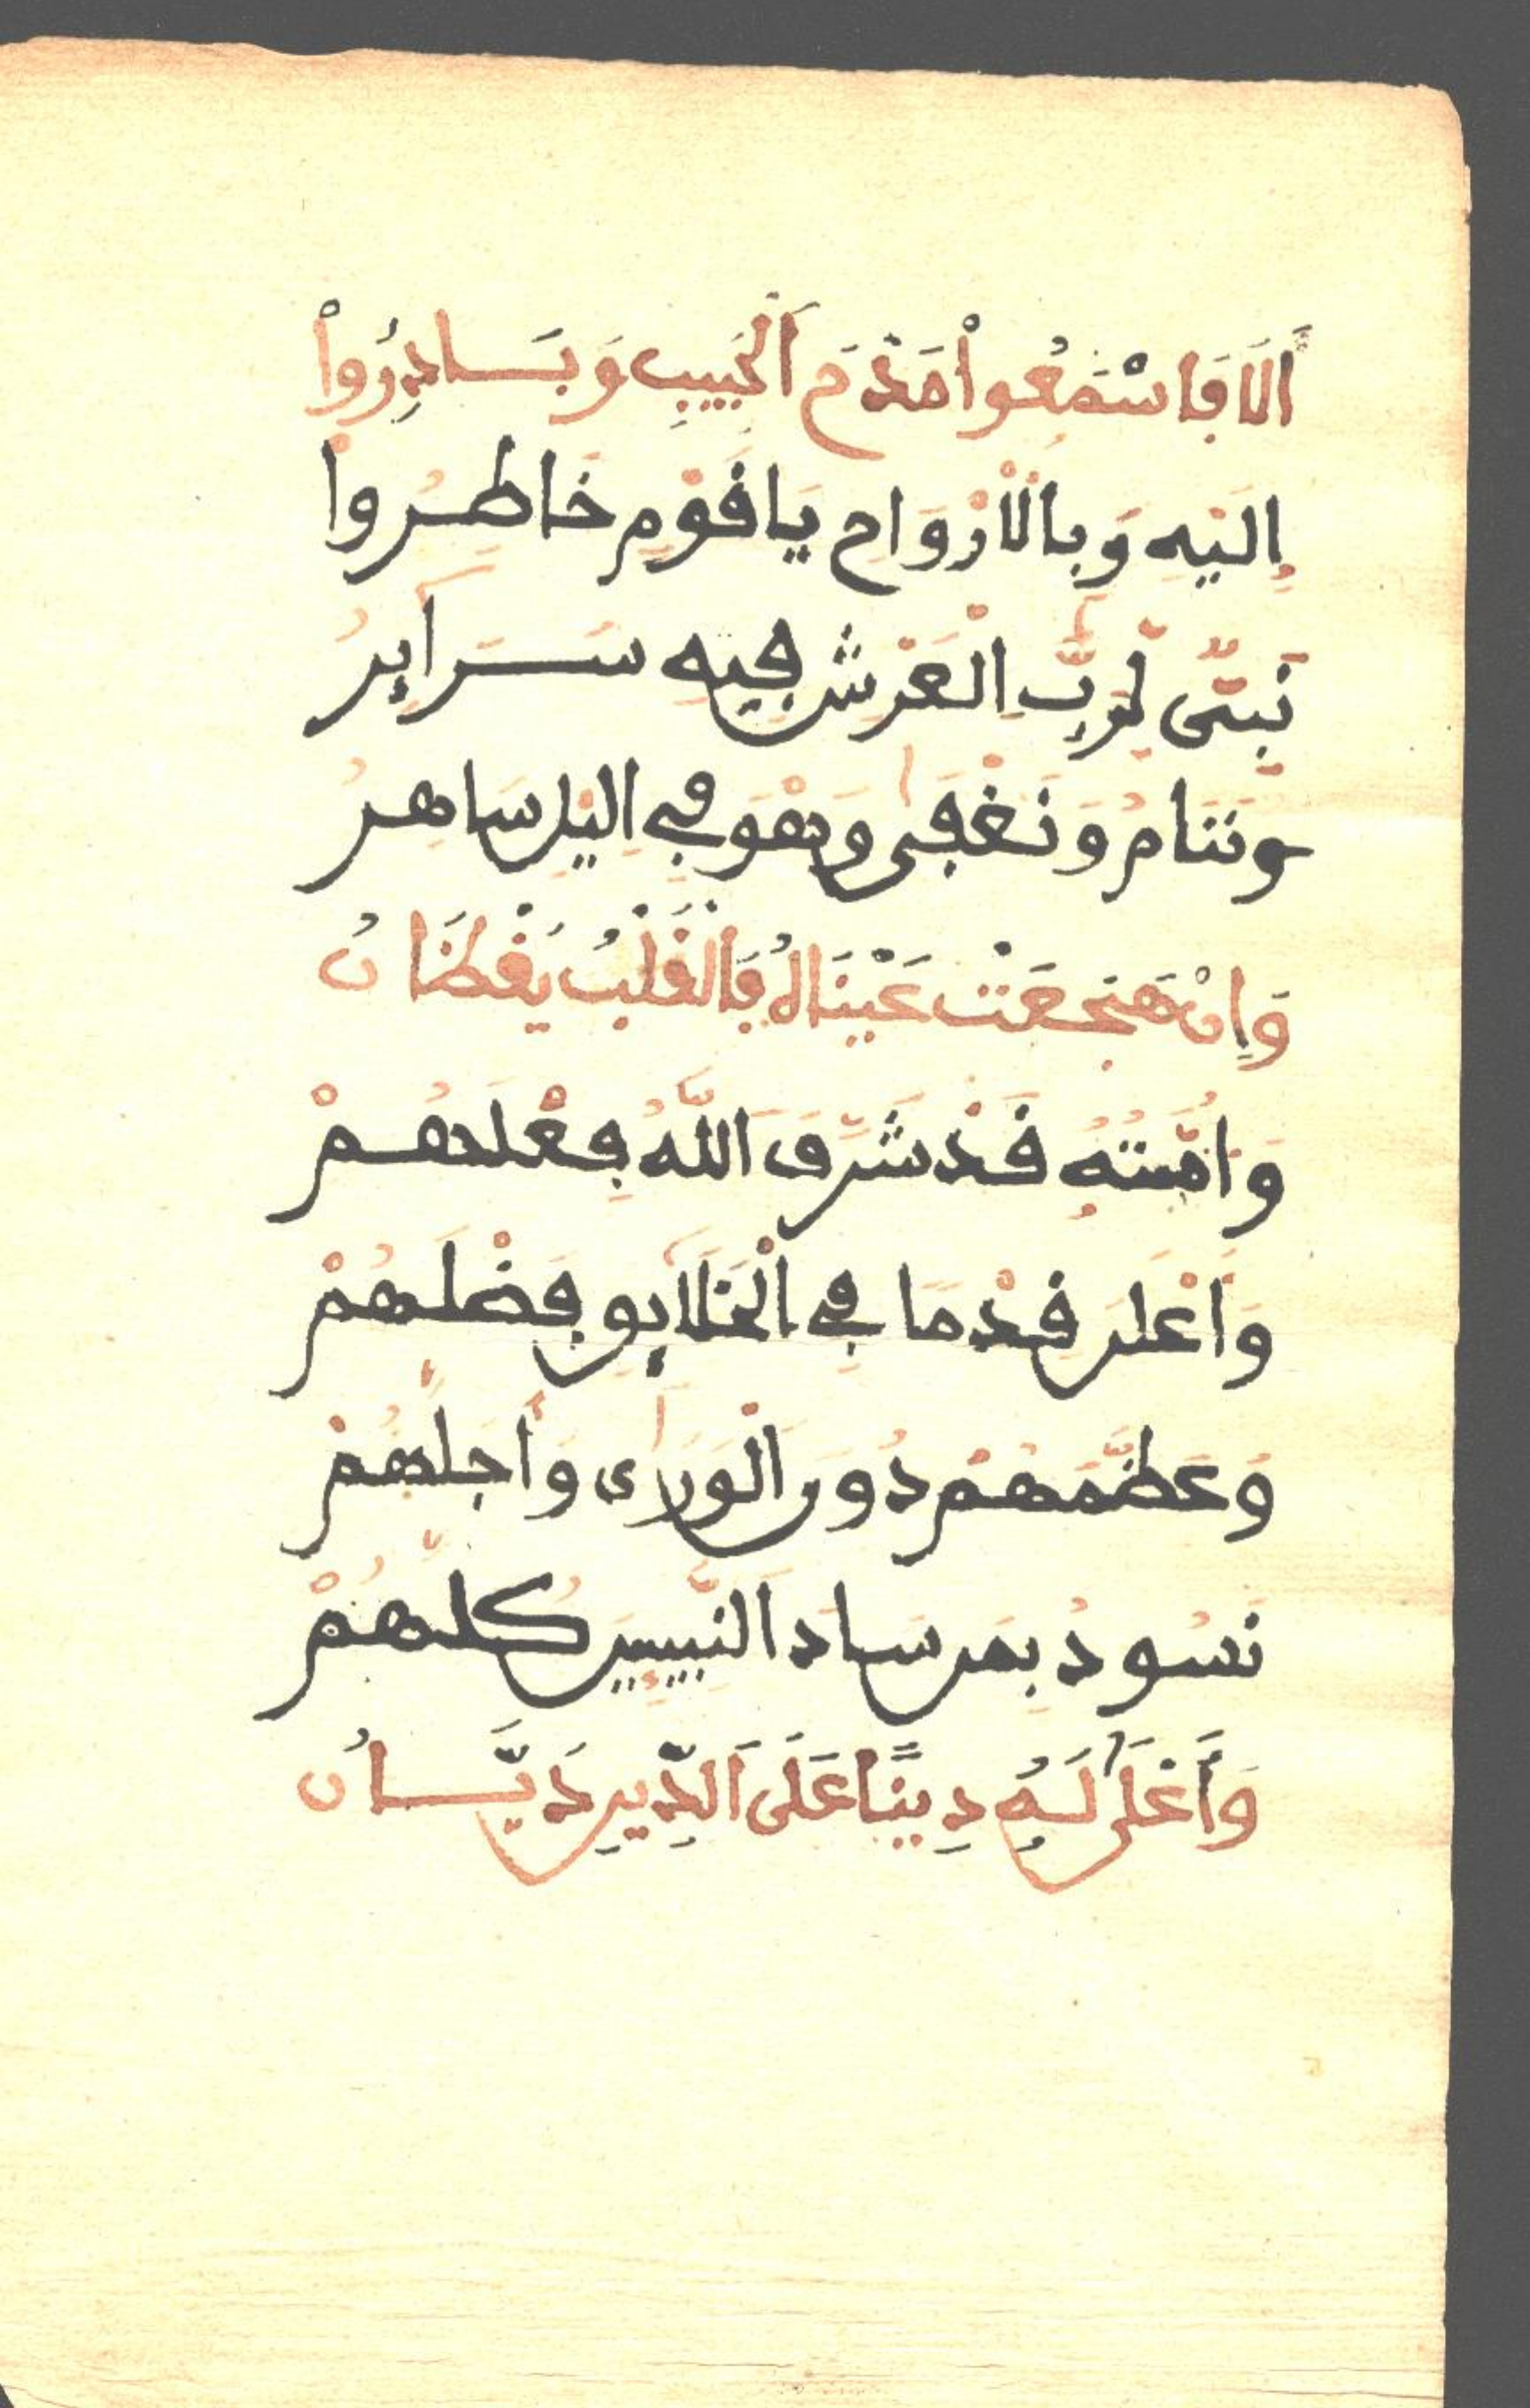 أَلَا فَاسْمَعُواْ مَدْحَ اَلْحَبِيبِ وَبَادِرُواْ
إِلَيْهِ وَبِالَارْوَاحِ يَا قَوْمِ خَاطِرُواْ
نَبِيٌّ لِرَبِّ الْعَرْشِ فِيهِ سَرَايِرُ
وننَامُ وَنَغْفَى وَهْوَ فِي اليْلِ سَاهِرُ
وَإِنْ هَجَعَتْ عَيْنَاهُ فَالْقَلْبُ يَقْظَانُ
وَامَّتُهُ قَدْ شَرَّفَ اَللَّهُ فِعْلَهُمْ
وَأَعْلَنَ قِدْمًا فِي اَلْخَلَايِقِ فَضْلَهُمْ
وَعَظَّمَهُمْ دُونَ اَلْوَرَى وَأَجَلَّهُمْ
نَسُودُ بِمَن سَادَ اَلنَّبِيِّينَ كُلَّهُمْ
وَأَعْلَى لَهُ دِينًا عَلَى اَلدِّينِ دَيَّانُ